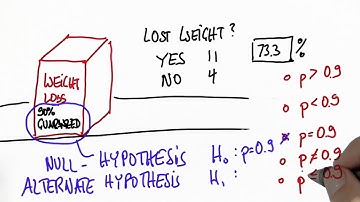 LOST WEIGHT?
YES 11
NO 4
73.3 %
WEIGHT
LOSS
90%
p > 0.9
p < 0.9
p = 0.9
p ≠ 0.9
NULL - HYPOTHESIS H₀ : p=0.9
ALTERNATE HYPOTHESIS H₁ :